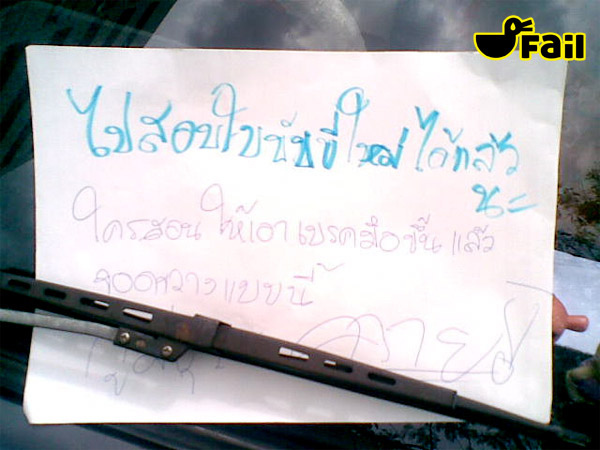 Fail
ไปสอบใบขับขี่ใหม่ได้แล้ว
นะ
ใครสอนให้เอาเบรคมือขึ้น แล้ว
จอดขวางแบบนี้